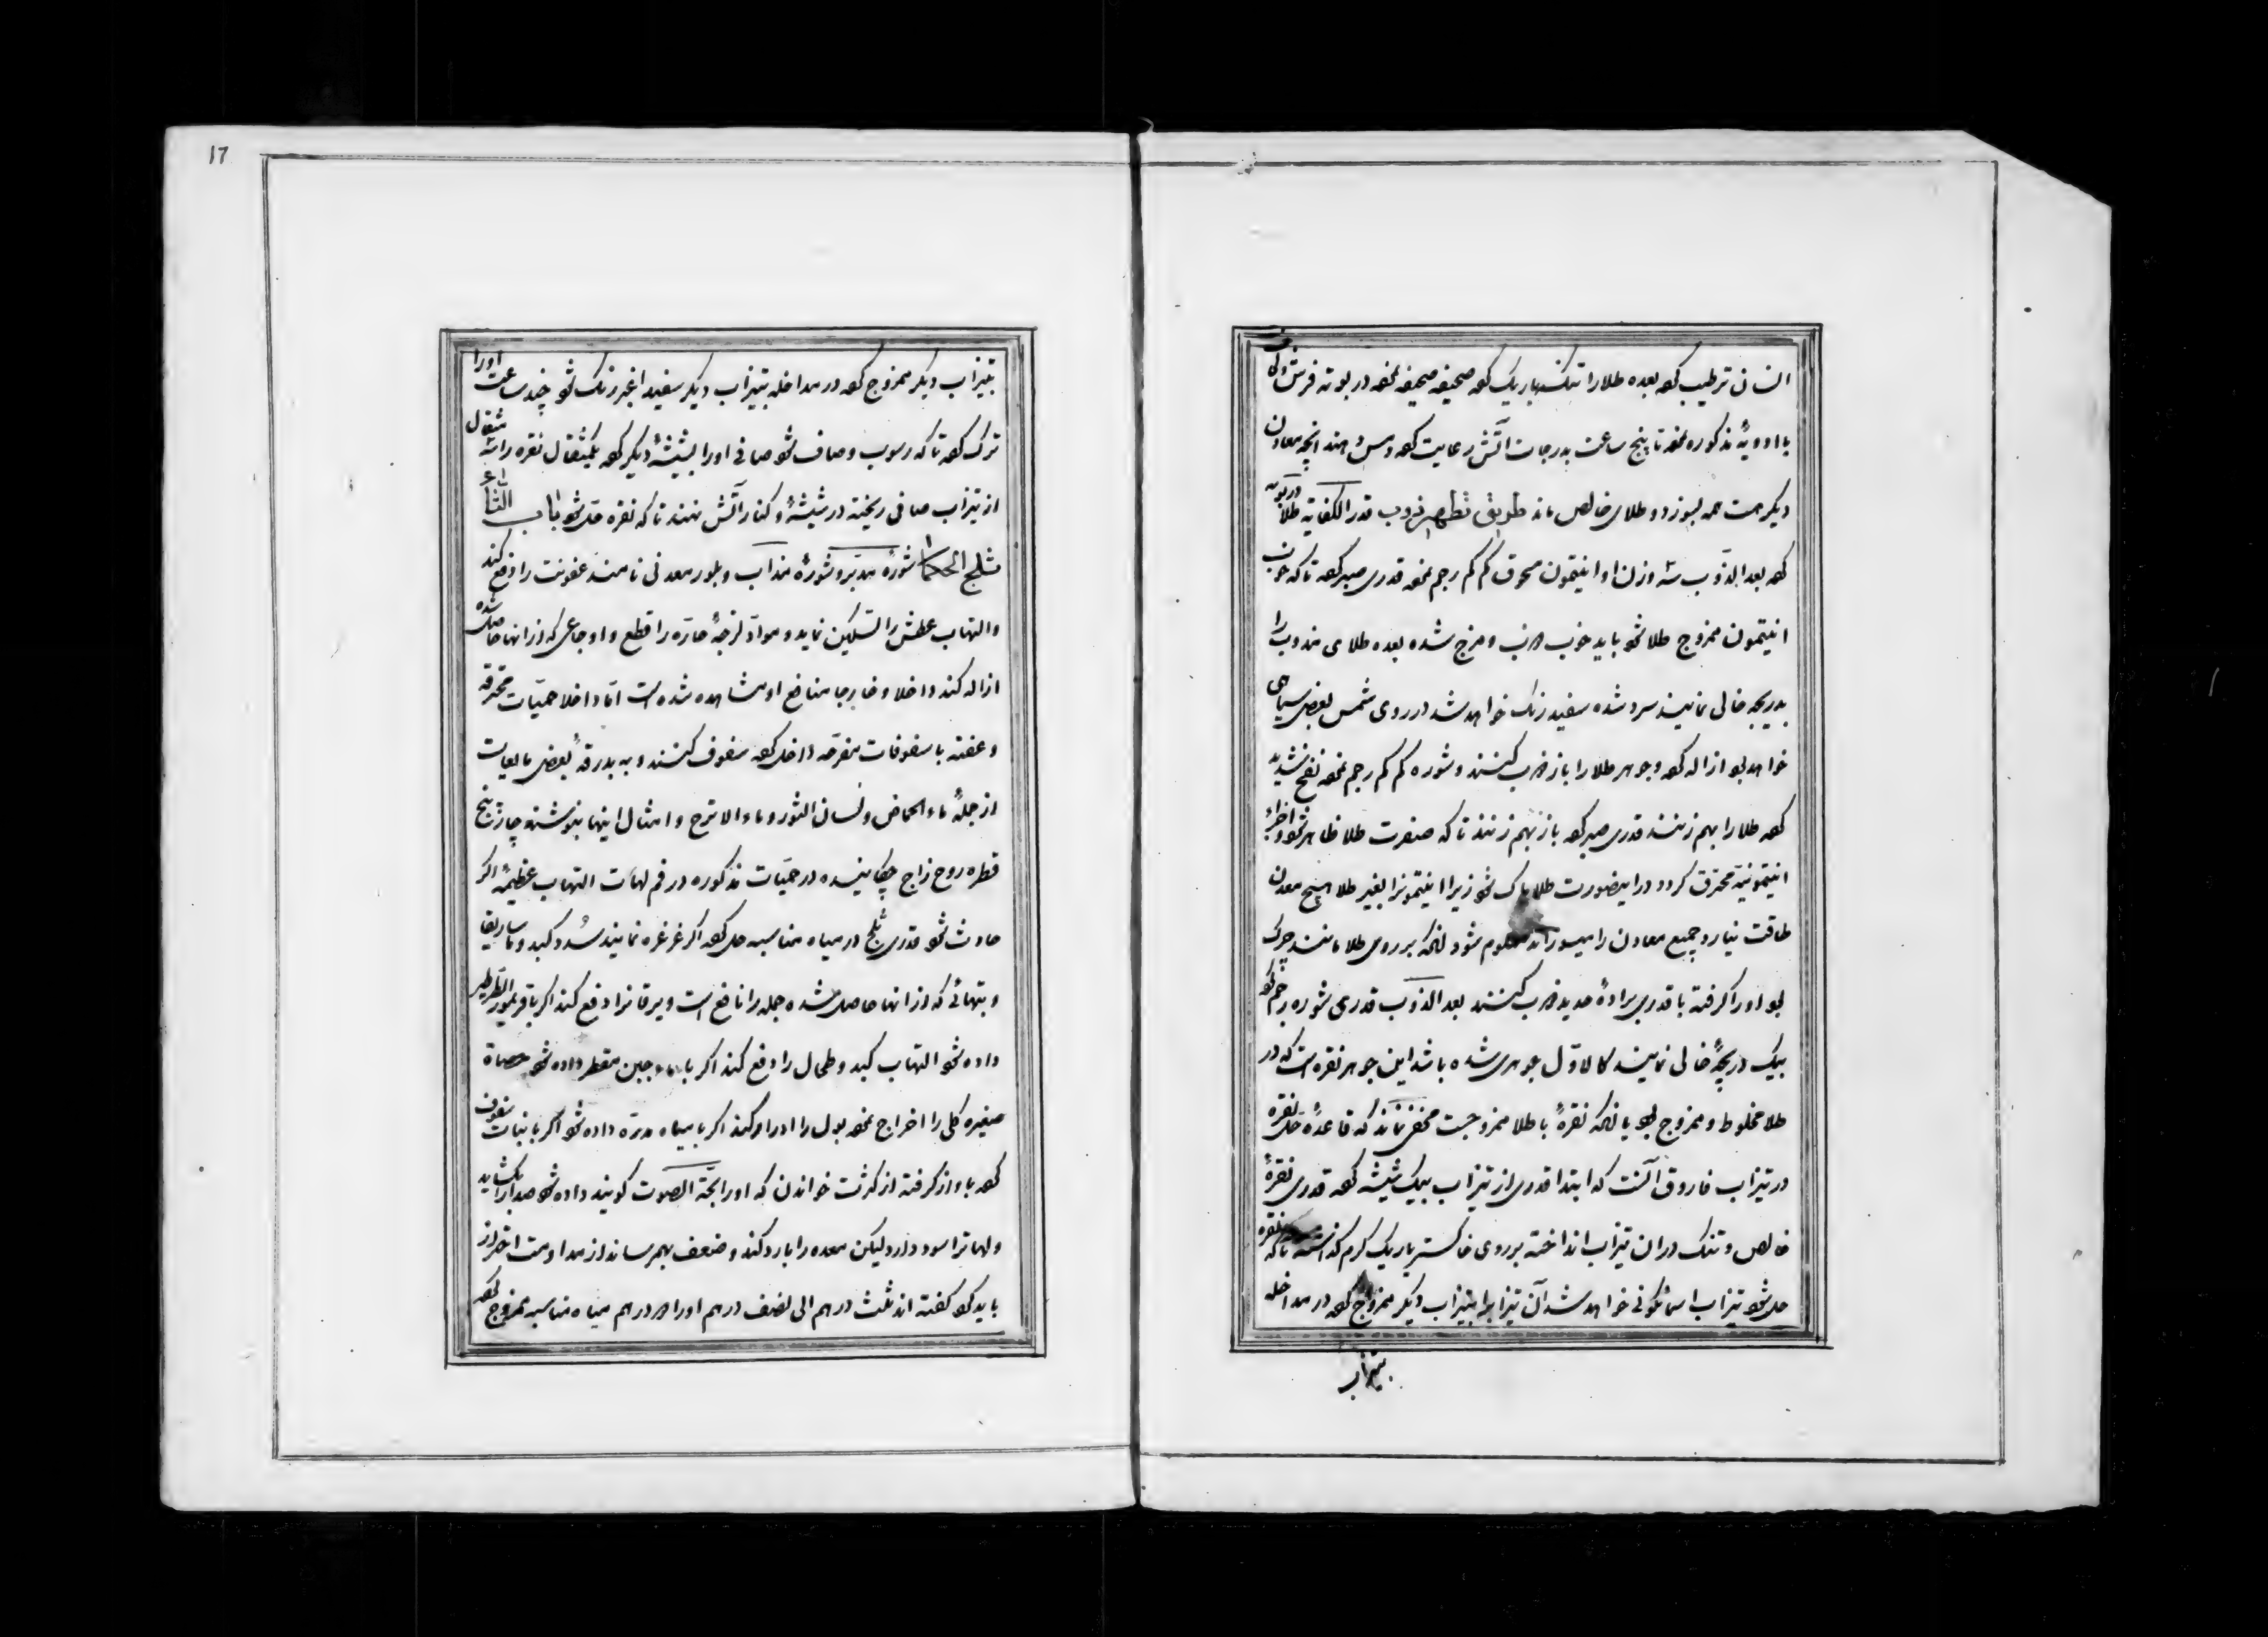 انسان ترطیب کرده بعده طلا را تنک باریک کرده صحیفه صحیفه نموده در بوته فرش و کی
با ادویهٔ مذکوره نموده تا پنج ساعت بدرجات آتش رعایت کرده دهند آنچه معادن
دیگر هست همه بسوزد و طلای خالص ماند طریق تطهیر ذوب قدر الکفایه طلا در بوته
کرده بعد الذوب سه وزن او انتیمون مسحوق کم کم رجم نموده قدری صبر کرده تا که خوب
انتیمون ممزوج طلا شود باید خوب ذوب و مزج شده بعده طلای مذوب را
بدریجه خالی نمایند سرد شده سفید رنک خواهد شد در روی شمس بعضی سیاهی
خواهد بود ازاله کرده و جوهر طلا را باز ذوب کنند و شوره کم کم رجم نموده نفخ شدید
کرده طلا را بهم زنند قدری صبر کرده باز بهم زنند تا که صفرت طلا ظاهر شود و اجزاء
انتیمونیه محترق کردد در اینصورت طلا پاک شود زیرا انتیمونرا بغیر طلا هیچ معدن
طاقت نیارد و جمیع معادن را میسوزاند معلوم شود آنکه بر روی طلا مانند چرک
بود اورا کرفته با قدری برادهٔ حدید ذوب کنند بعد الذوب قدری شوره رجم کرده
بیک دریجهٔ خالی نمایند کالاول جوهری شده باشد این جوهر نقره است که در
طلا مخلوط و ممزوج بود یا آنکه نقرهٔ با طلا ممزوجست مخفی نماند که قاعدهٔ حل نقره
در تیزاب فاروق آنست که ابتدا قدری از تیزاب بیک شیشه کرده قدری نقرهٔ
خالص و تنک در ان تیزاب انداخته بر روی خاکستر باریک کرم کذاشته تا که نقره
حل شود تیزاب اسمانکونی خواهد شد آن تیزاب را بتیزاب دیکر ممزوج کرده در مداخله
بتیزاب
17
بتیزاب دیکر ممزوج کرده در مداخله بتیزاب دیکر سفید اغبر رنک شود چند ساعت اورا
ترک کرده تا که رسوب و صاف شود صافی اورا بشیشهٔ دیکر کرده یکمثقال نقره را سه مثقال
از تیزاب صافی ریخته در شیشهٔ و کنار آتش نهند تا که نقره حل شود باب التاسع
مثلج الحکما شورهٔ مدبر و شورهٔ مذاب و بلور معدنی نامند عفونت را دفع کند
والتهاب عطش را تسکین نماید و مواد لزجهٔ حاره را قطع و اوجاعی که از انها حاصل شده
ازاله کند داخلا و خارجا منافع او مشاهده شده است اما داخلا حمیات محترقه
و عفنه با سفوفات مفرحه داخل کرده سفوف کنند و به بدرقهٔ بعضی مایعات
از جملهٔ ماء الحماض و لسان الثور و ماء الاترج و امثال اینها بنوشند و چار پنج
قطره روح زاج چکانیده در حمیات مذکوره در فم لهات التهاب عظیمهٔ اکر
حادث شود قدری ثلج در میاه مناسبه حل کرده اکر غرغره نمایند سدد کبد و ماساریقا
و تبهائی که از انها حاصل شده جمله را نافع است و یرقانرا دفع کند اکر با قریمور الطرطیر
داده شود التهاب کبد و طحال را دفع کند اکر با ماء جبن مقطر داده شود حصاة
صغیره کلی را اخراج نموده بول را ادرار کند اکر با میاه مدره داده شود اکر با نبات سفوف
کرده با واز کرفته از کثرت خواندن که اورا بحة الصوت کویند داده شود صدا را بکشاید
ولهاترا سود دارد لیکن معده را بارد کند و ضعف بهم رساند از مداومت احتراز
باید کرد کفته اند ثلث درهم الی نصف درهم اورا در درهم میاه مناسبه ممزوج کرده